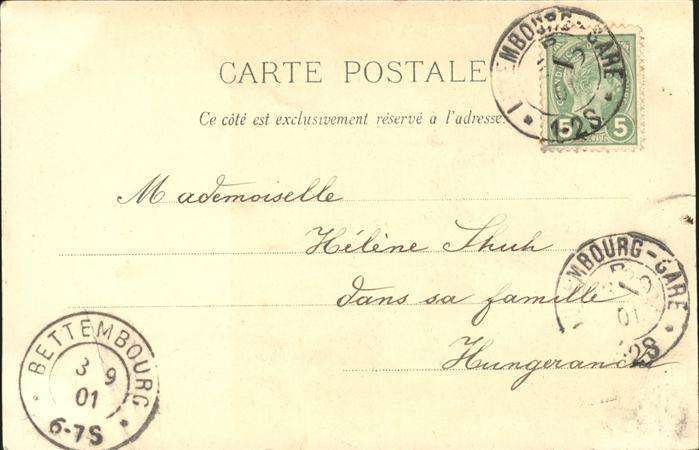 CARTE POSTALE
Ce côté est exclusivement réservé à l'adresse.
EMBOURG-GARE
1-2S
5 5
Mademoiselle
Hélène Shuh
dans sa famille
EMBOURG-GARE
01
2S
BETTEMBOURG
3 9
01
6-7S